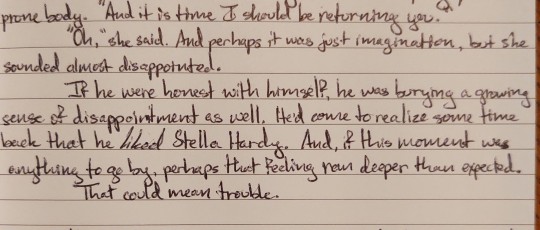 prone body. "And it is time I should be returning you."
"Oh," she said. And perhaps it was just imagination, but she
sounded almost disappointed.
If he were honest with himself, he was burying a growing
sense of disappointment as well. He'd come to realize some time
back that he liked Stella Hardy. And, if this moment was
anything to go by, perhaps that feeling ran deeper than expected.
That could mean trouble.